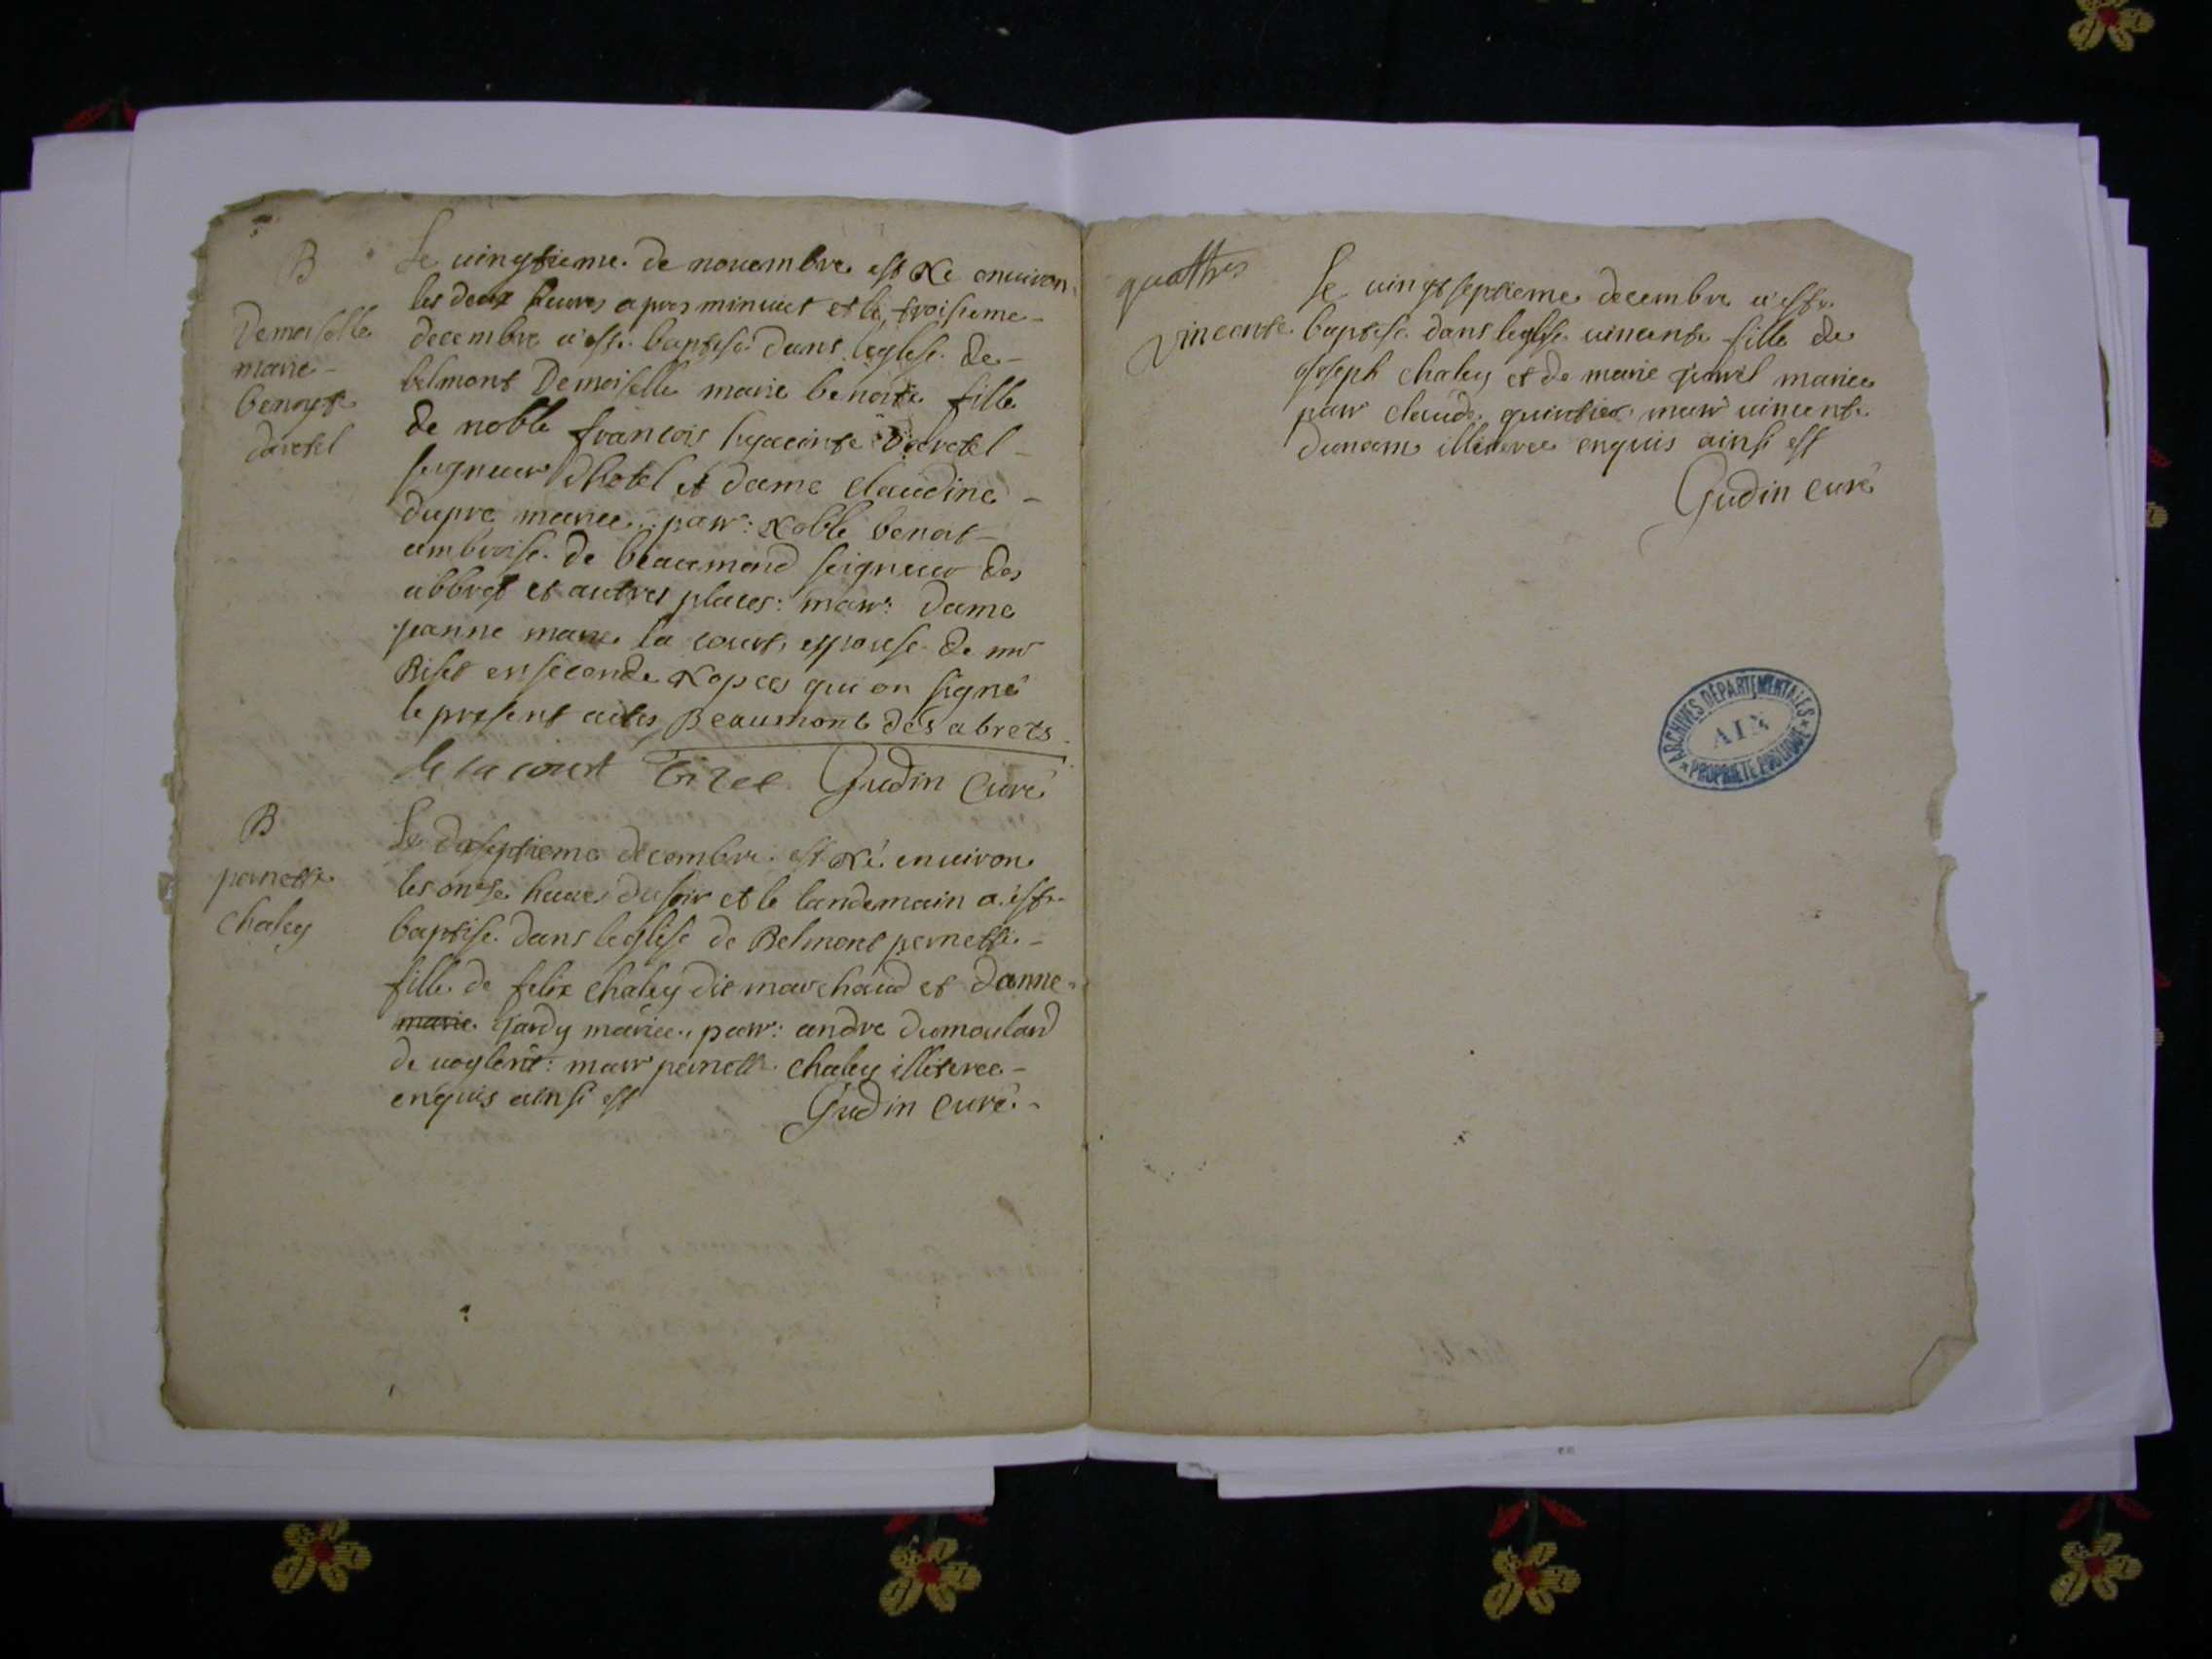 B
Demoiselle
marie
benoyte
dareṫel
Le vingtieme de novembre est Né environ
les deux heures apres minuict et le troisieme
decembre a este baptisé dans leglise de
belmont Demoiselle marie benoite fille
de noble françois hyacinte
seigneur dhotel et dame claudine
dupre mariee parr: Noble benoit
ambroise de beaumond seigneur des
abbret et autres places: marr: dame
jeanne marie la court espouse de mr
Biset en seconde Nopces qui on signé
le present actes Beaumont des abrets
de la court Bizet Gudin Curé
B
pernette
Chaley
Le dixseptieme decembre est Né environ
les onse heures du soir et le landemain a este
baptise dans leglise de Belmont pernette
fille de felix Chaley dit marchand et danne
marie Jardy mariee, parr: andre dumoulard
de uoglent: marr pernette Chaley illiteree
enquis ainsi est Gudin Curé
quattres
vincente
Le vingt septieme decembre a este
baptise dans leglise vincente fille de
joseph chaley et de marie mariee
parr claude marr vincente
illiteree enquis ainsi est
Gudin curé
ARCHIVES DÉPARTEMENTALES
AIN
PROPRIÉTÉ PUBLIQUE